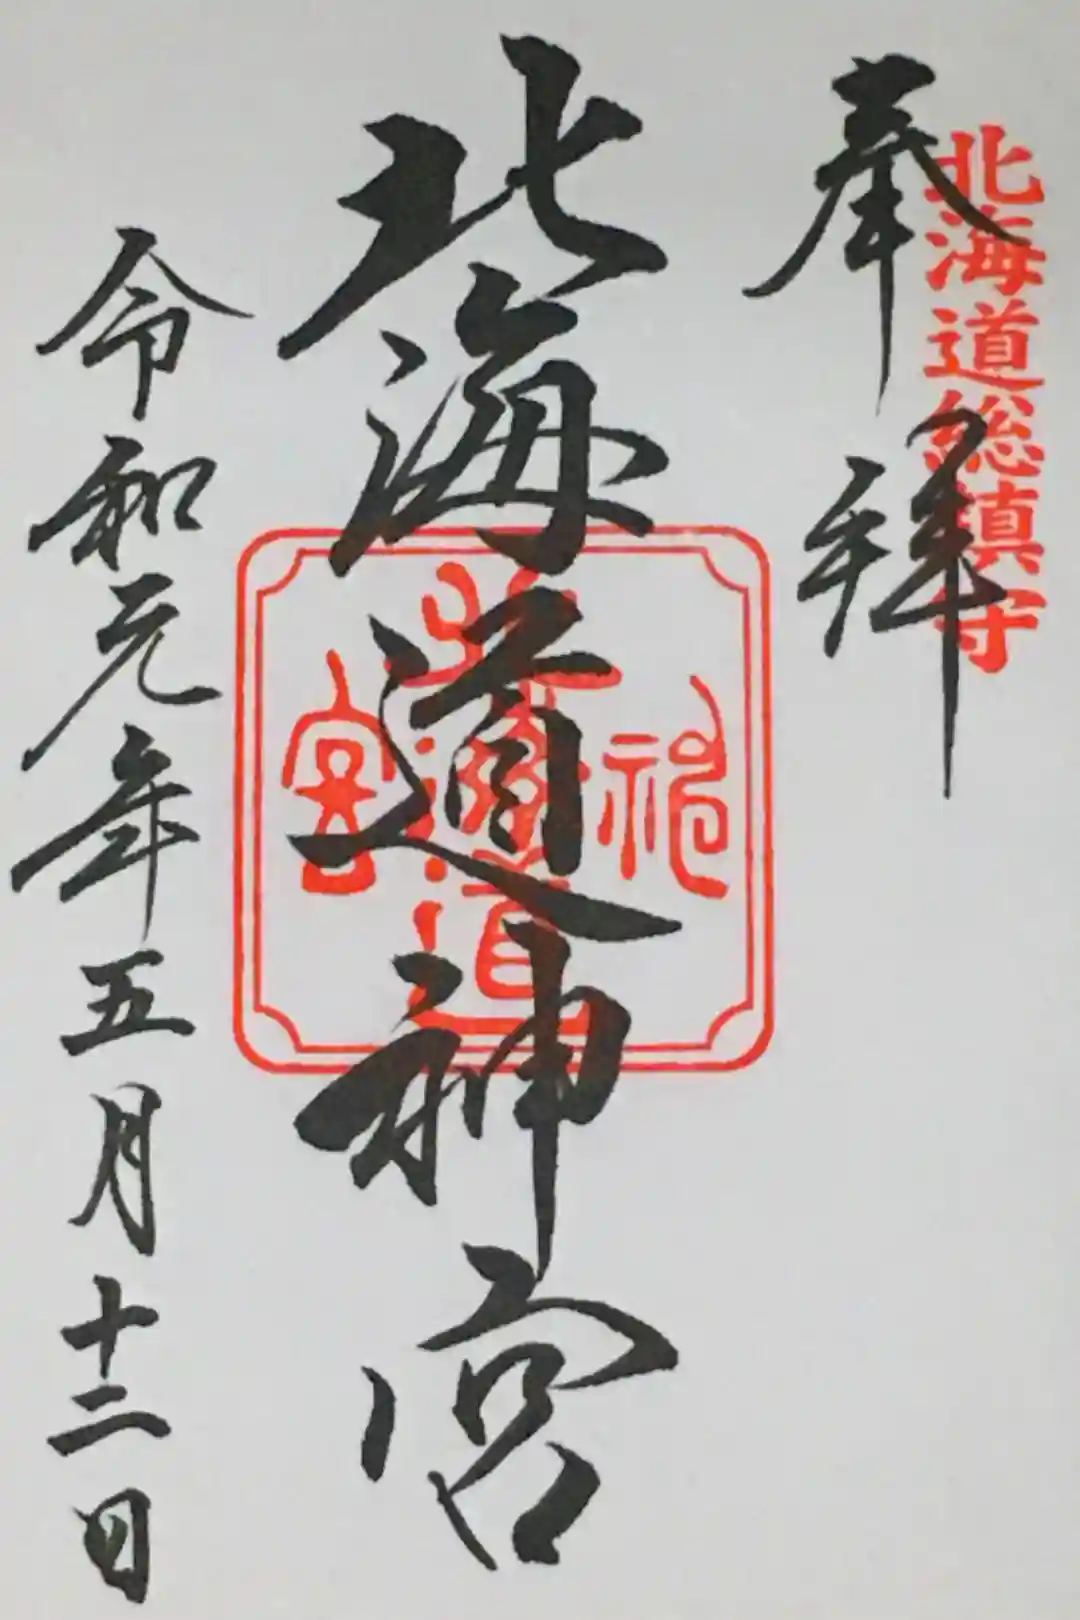 北海道総鎮守
奉拝
北海道神宮
北海道
神
宮
令和元年五月十二日